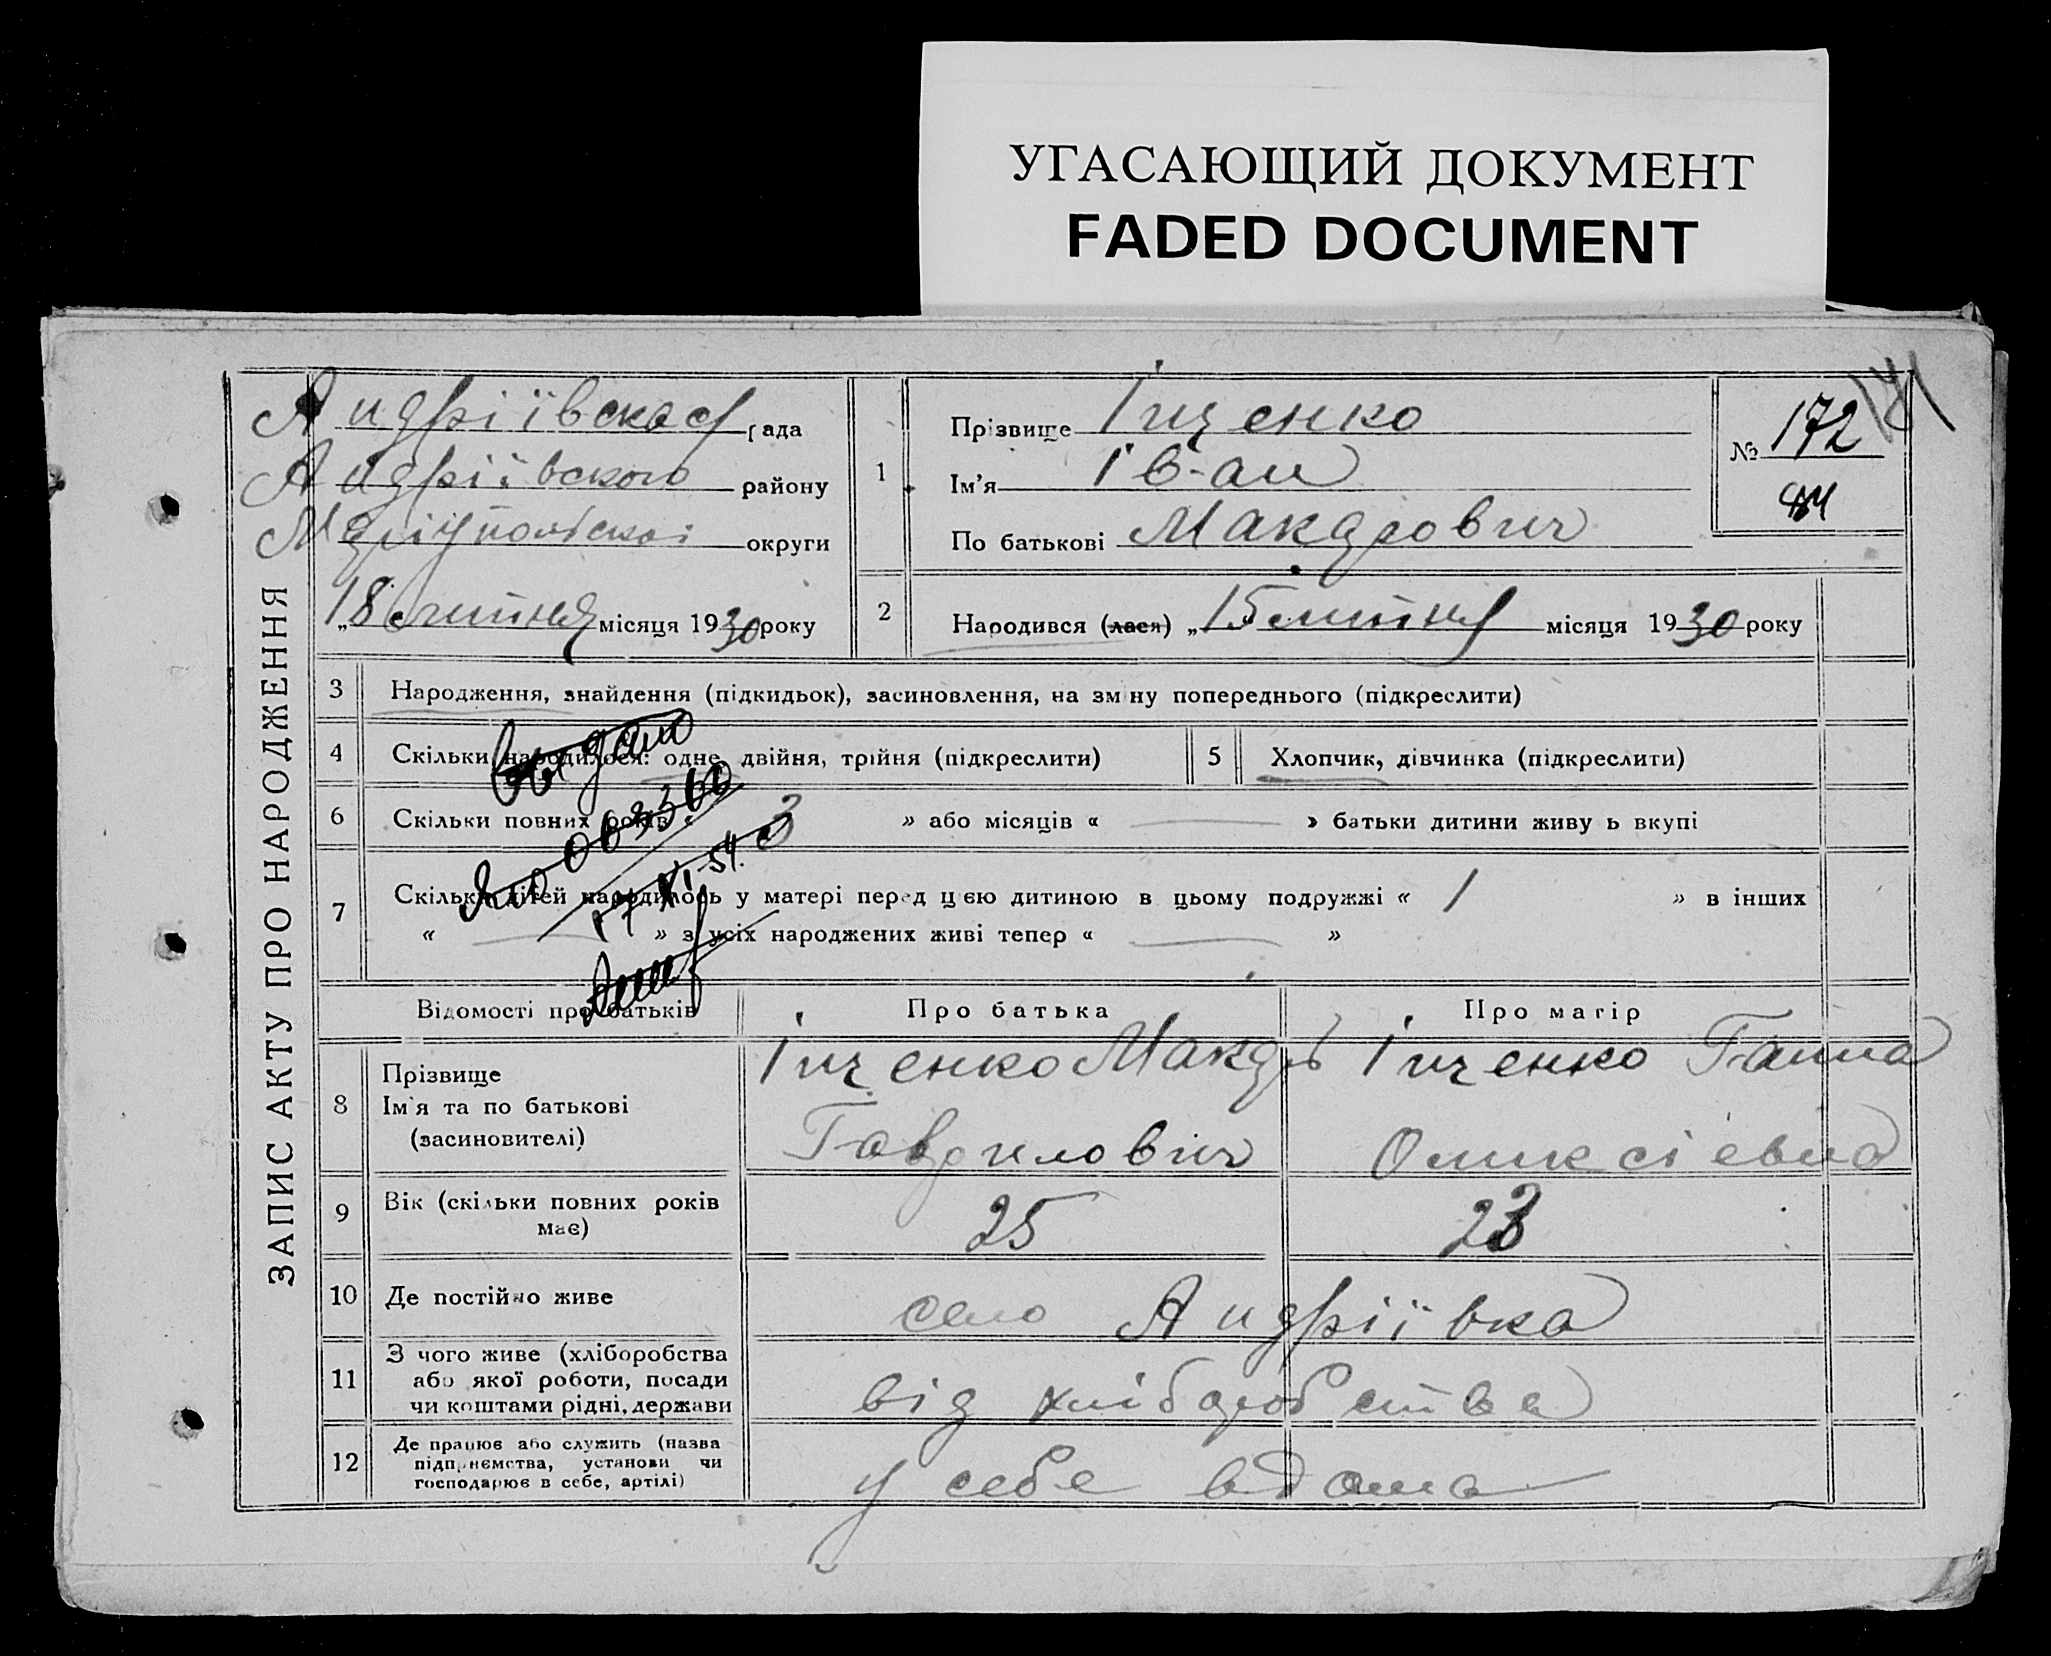 УГАСАЮЩИЙ ДОКУМЕНТ
FADED DOCUMENT
ЗАПИС АКТУ ПРО НАРОДЖЕННЯ
Андріївская рада
Андріївского району
Маріупольскої округи
„18 липня місяця 1930 року
1
Прізвище Іщенко
Ім'я Іван
По батькові Макарович
№ 172
2
Народився (лася) „15 липня місяця 1930 року
3 Народження, знайдення (підкидьок), засиновлення, на зміну попереднього (підкреслити)
4 Скільки народилося: одне, двійня, трійня (підкреслити) 5 Хлопчик, дівчинка (підкреслити)
Видано
6 Скільки повних років « 3 » або місяців « — » батьки дитини живуть вкупі
17 XI-54.
7 Скільки дітей народилось у матері перед цією дитиною в цьому подружжі « 1 » в інших
« — » з усіх народжених живі тепер « — »
Відомості про батьків Про батька Про матір
8 Прізвище
Ім'я та по батькові
(засиновителі)
Іщенко Макар
Гаврилович
Іщенко Ганна
Оликсієвна
9 Вік (скільки повних років
має)
25 23
10 Де постійно живе село Андріївка
11 З чого живе (хліборобства
або якої роботи, посади
чи коштами рідні, держави
від хліборобства
12 Де працює або служить (назва
підприємства, установи чи
господарює в себе, артілі)
у себе вдома